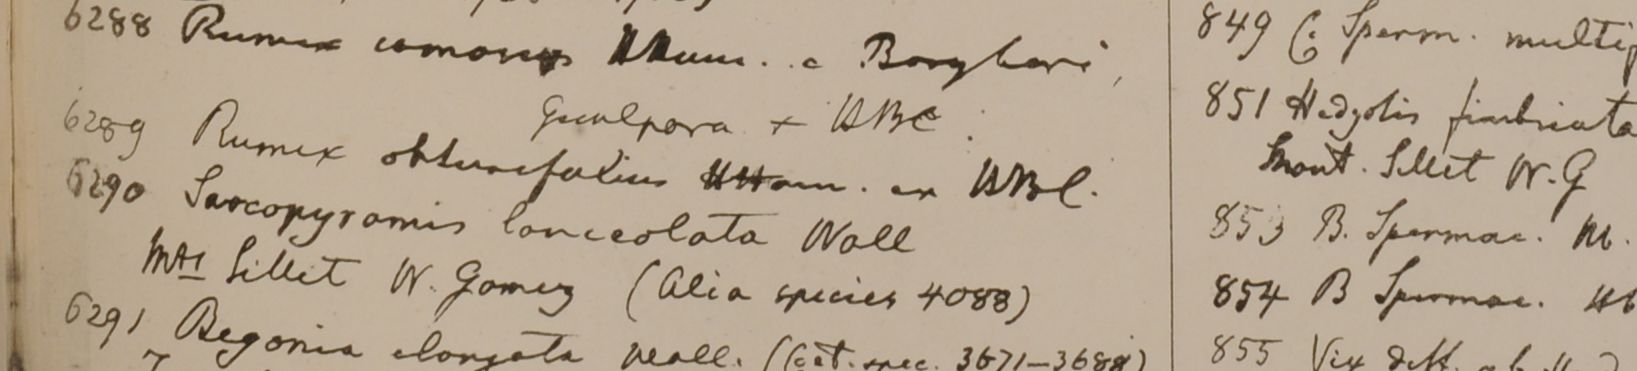 6288 Rumex comosus HHam. e Borghari,
Gualpara + HBC.
6289 Rumex obtusifolius HHam. ex HBC.
6290 Sarcopyramis lanceolata Wall
Mts Sillet W. Gomez (Alia species 4088)
6291 Begonia elongata Wall. (Cat. spec. 3671-3688)
849 C. Sperm. multip
851 Hedyotis fimbriata
Mont. Sillet W. G
853 B. Spermac.
854 B Spermac.
855 Vix diff. ab